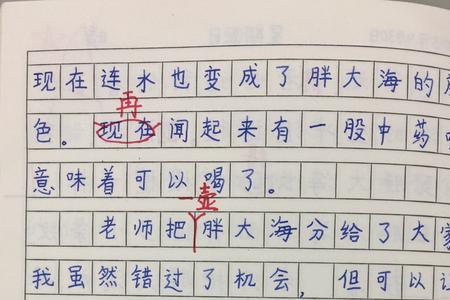 现在连水也变成了胖大海的
再
色。现在闻起来有一股中药
意味着可以喝了。
一壶
老师把胖大海分给了大家
我虽然错过了机会，但可以